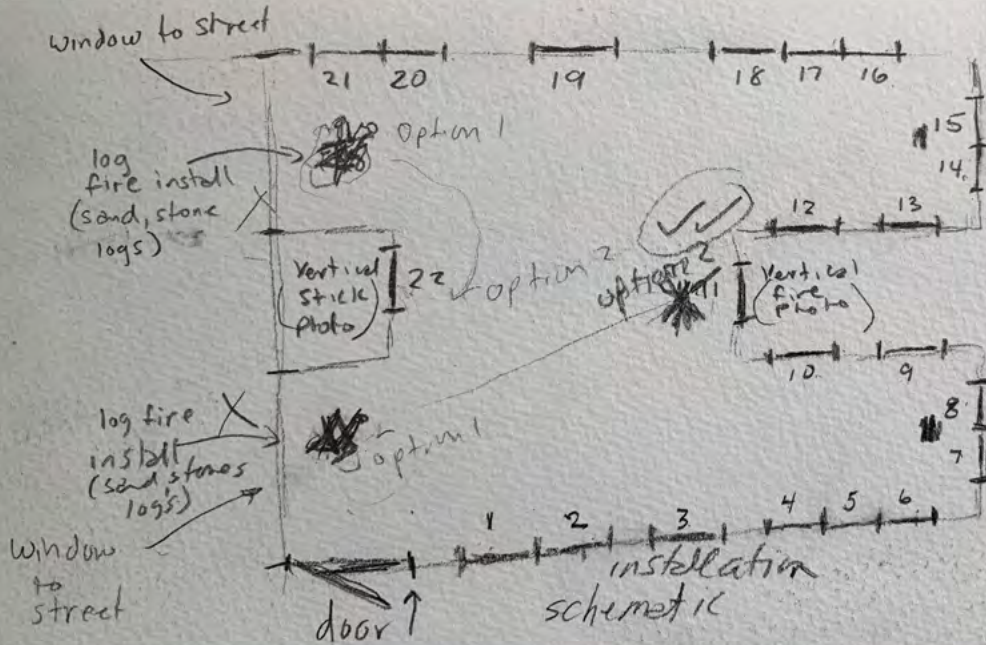 window to street
21 20 19 18 17 16
option 1
15
log
fire install
(sand, stone
logs)
14.
12 13
vertical
stick
photo
22
option 2
option 2
11
vertical
fire
photo
10 9
log fire
install
(sand, stones
logs)
option 1
8
7
window
to
street
1 2 3 4 5 6
door
installation
schematic